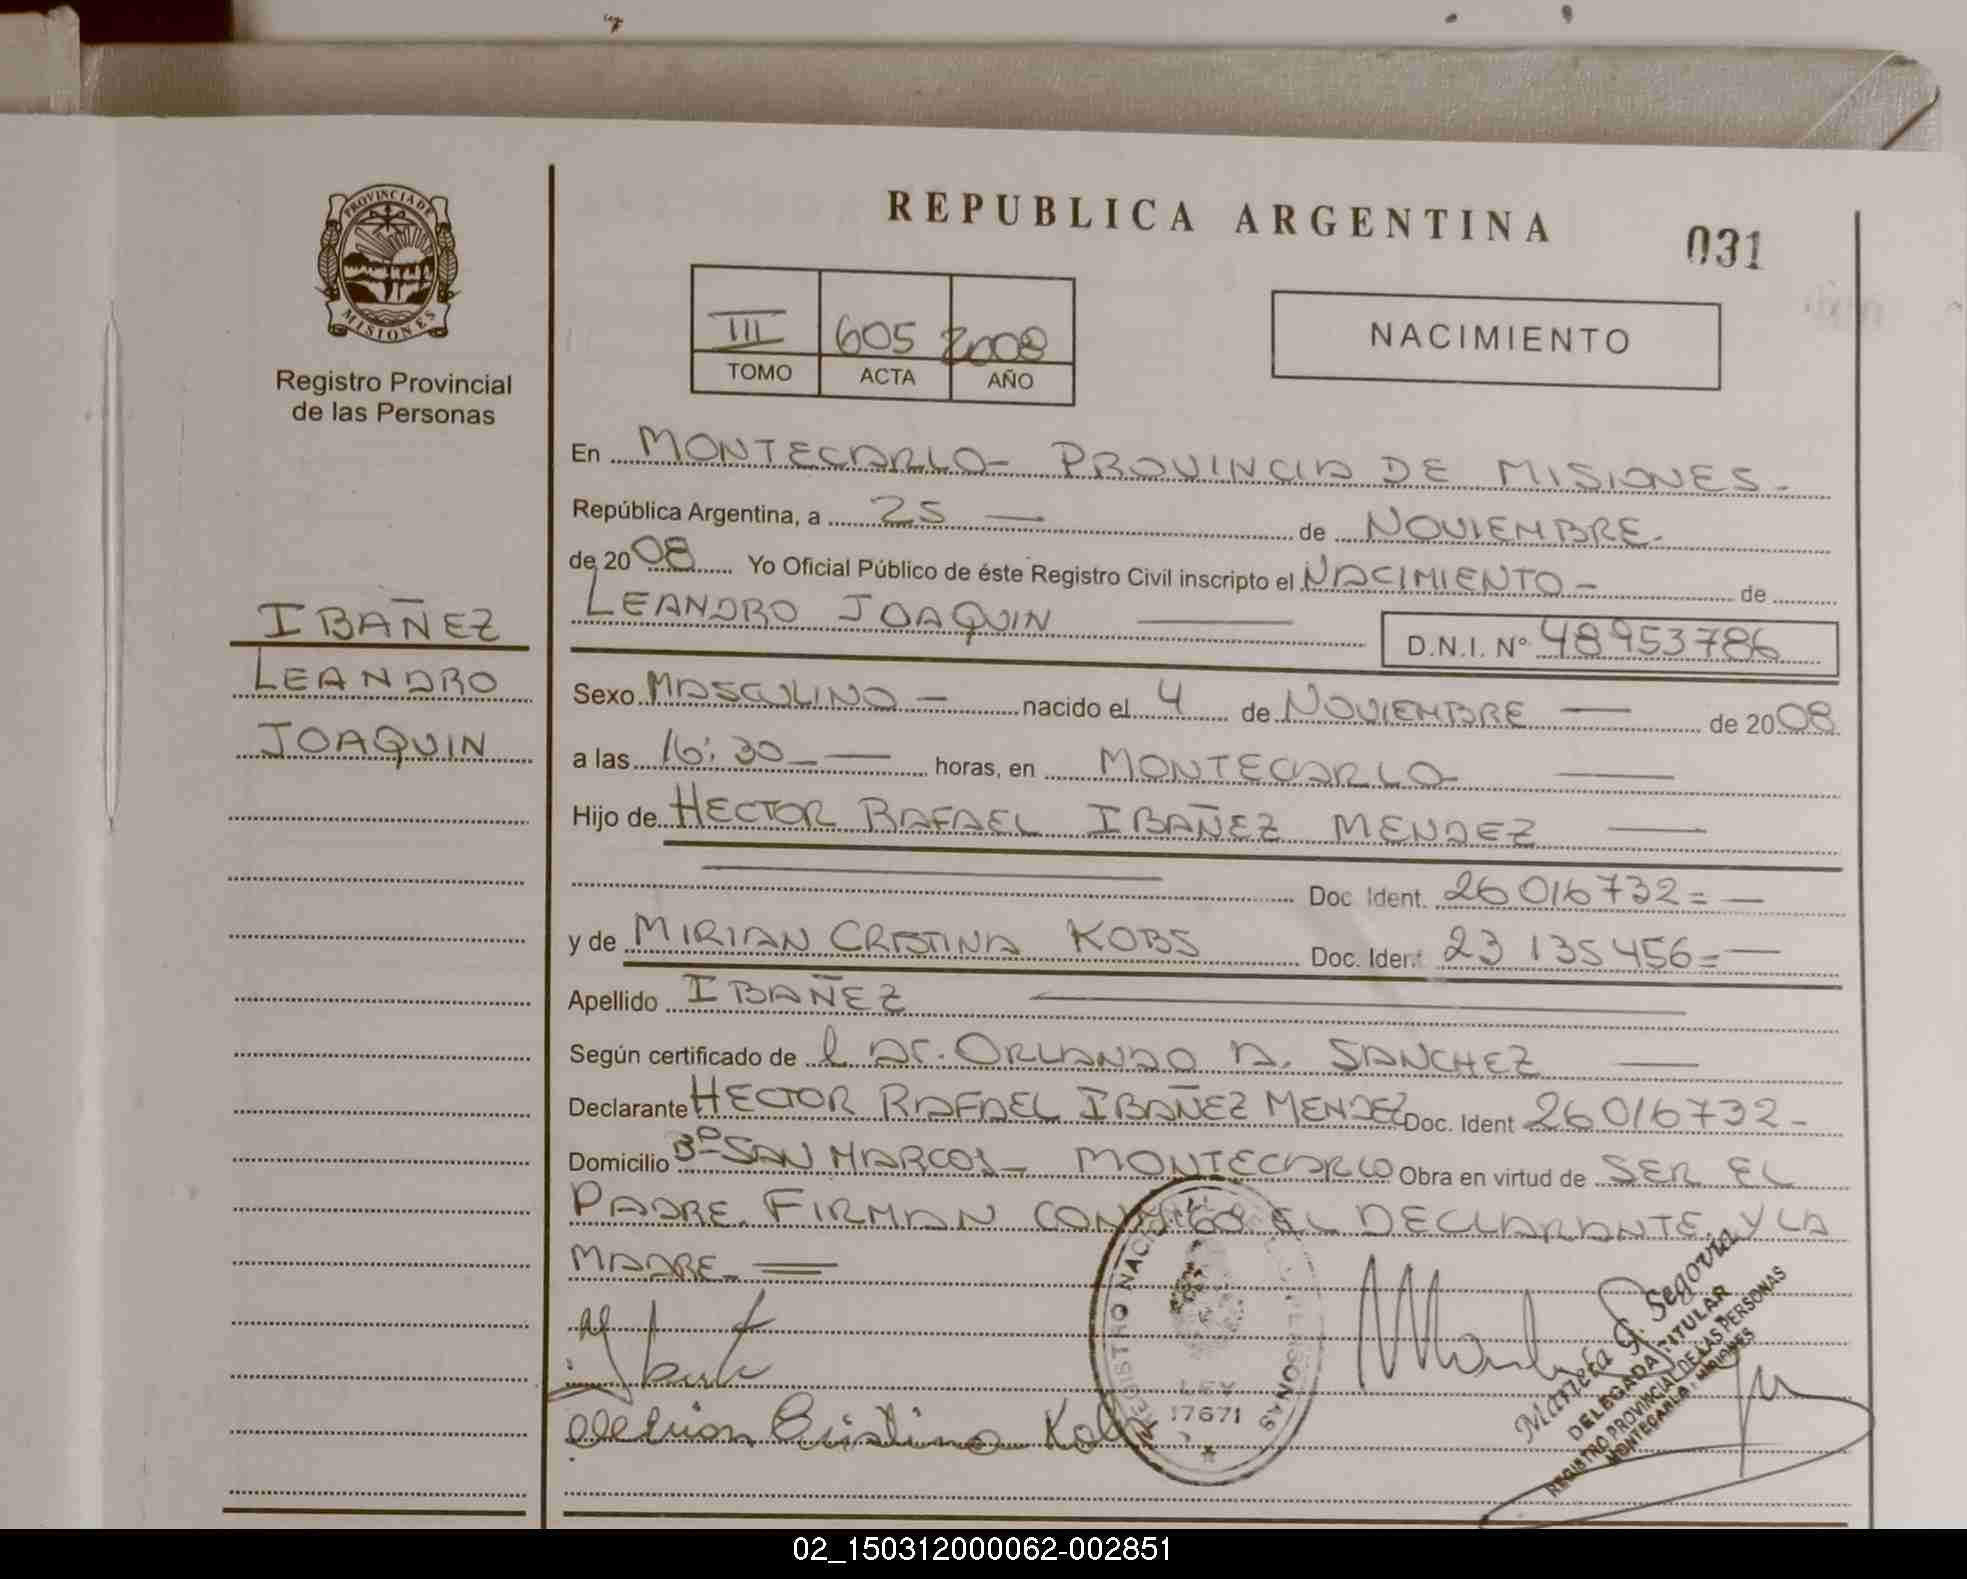 REPUBLICA ARGENTINA
031
PROVINCIA DE
MISIONES
Registro Provincial
de las Personas
III 605 2008
TOMO ACTA AÑO
NACIMIENTO
IBAÑEZ
LEANDRO
JOAQUIN
En MONTECARLO - PROVINCIA DE MISIONES -
República Argentina, a 25 — de NOVIEMBRE.
de 2008 Yo Oficial Público de éste Registro Civil inscripto el NACIMIENTO - de
LEANDRO JOAQUIN — D.N.I. Nº 48953786
Sexo MASCULINO - nacido el 4 de NOVIEMBRE — de 2008
a las 16:30 — horas, en MONTECARLO —
Hijo de HECTOR RAFAEL IBAÑEZ MENDEZ —
Doc. Ident. 26016732= —
y de MIRIAN CRISTINA KOBS Doc. Ident 23135456= —
Apellido IBAÑEZ —
Según certificado de l Dr. ORLANDO A. SANCHEZ —
Declarante HECTOR RAFAEL IBAÑEZ MENDEZ Doc. Ident 26016732 -
Domicilio Bº SAN MARCOS - MONTECARLO Obra en virtud de SER EL
PADRE. FIRMAN CONMIGO EL DECLARANTE Y LA
MADRE. =
REGISTRO NACIONAL DE LAS PERSONAS
LEY
17671
Mirian Cristina Kobs
Mariela G. Segovia
DELEGADA TITULAR
REGISTRO PROVINCIAL DE LAS PERSONAS
MONTECARLO - MISIONES
02_150312000062-002851